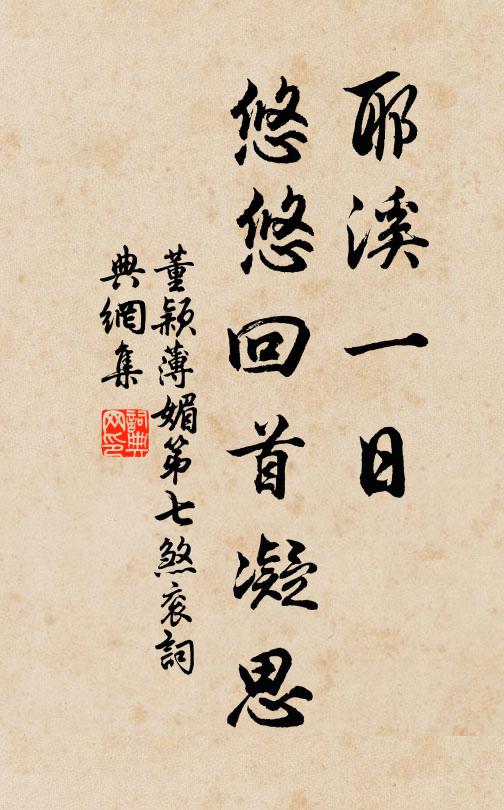 耶溪一日
悠悠回首凝思
董颖薄媚第七煞衮詞
典網集
詞典网印